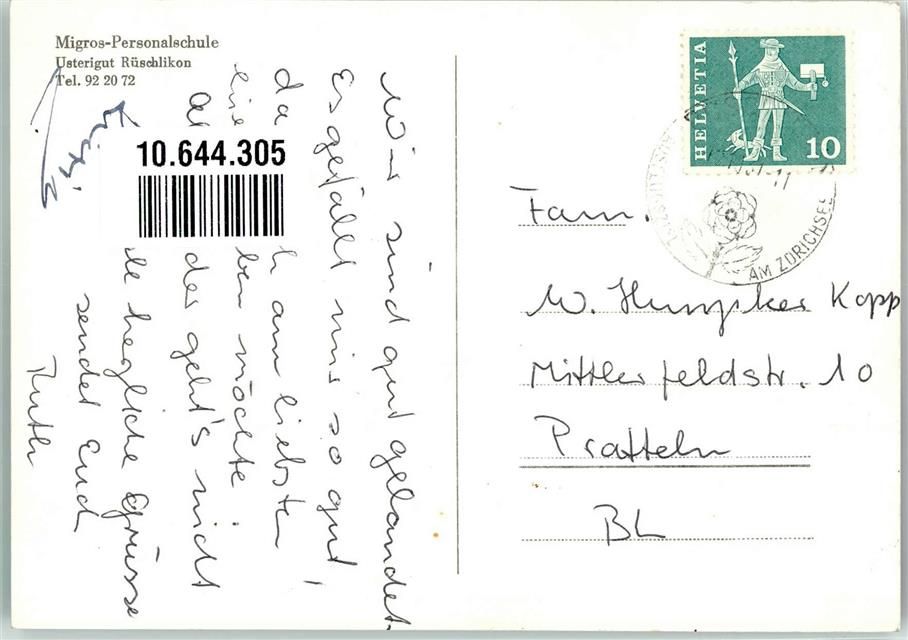 Migros-Personalschule
Usterigut Rüschlikon
Tel. 92 20 72
Wir sind gut gelandet.
Es gefällt mir so gut,
da h am liebsten
ben möchte
der geht's nicht
hezliche Grüsse
sendet Euch
Ruth
10.644.305
HELVETIA
10
AM ZÜRICHSEE
Fam.
W. Kopp
Mittlerfeldstr. 10
Pratteln
BL